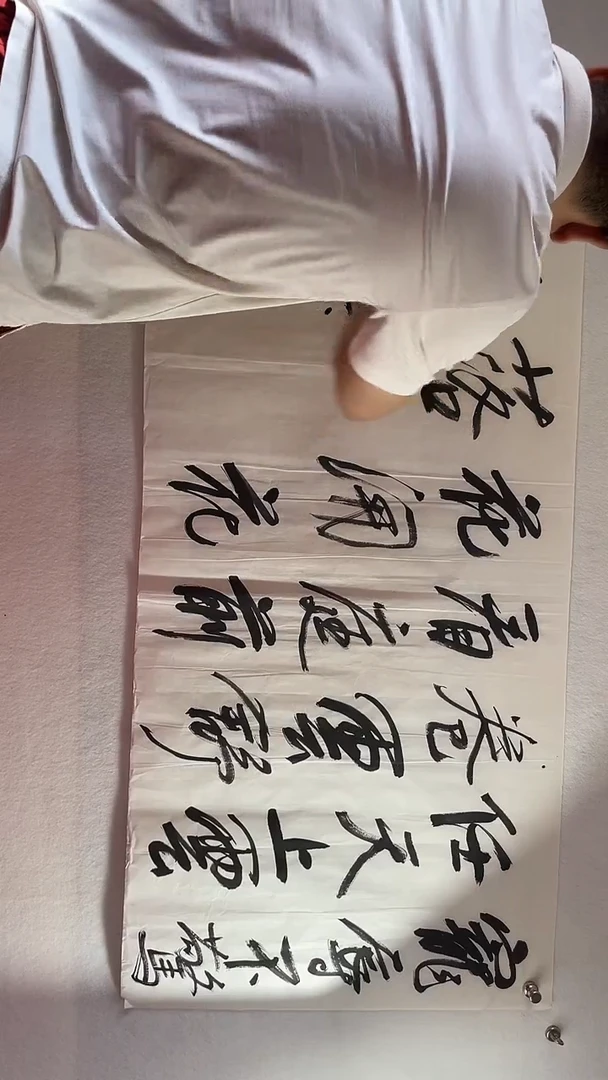 寵辱不驚
任天上雲
卷雲舒
看庭前
花開花
落